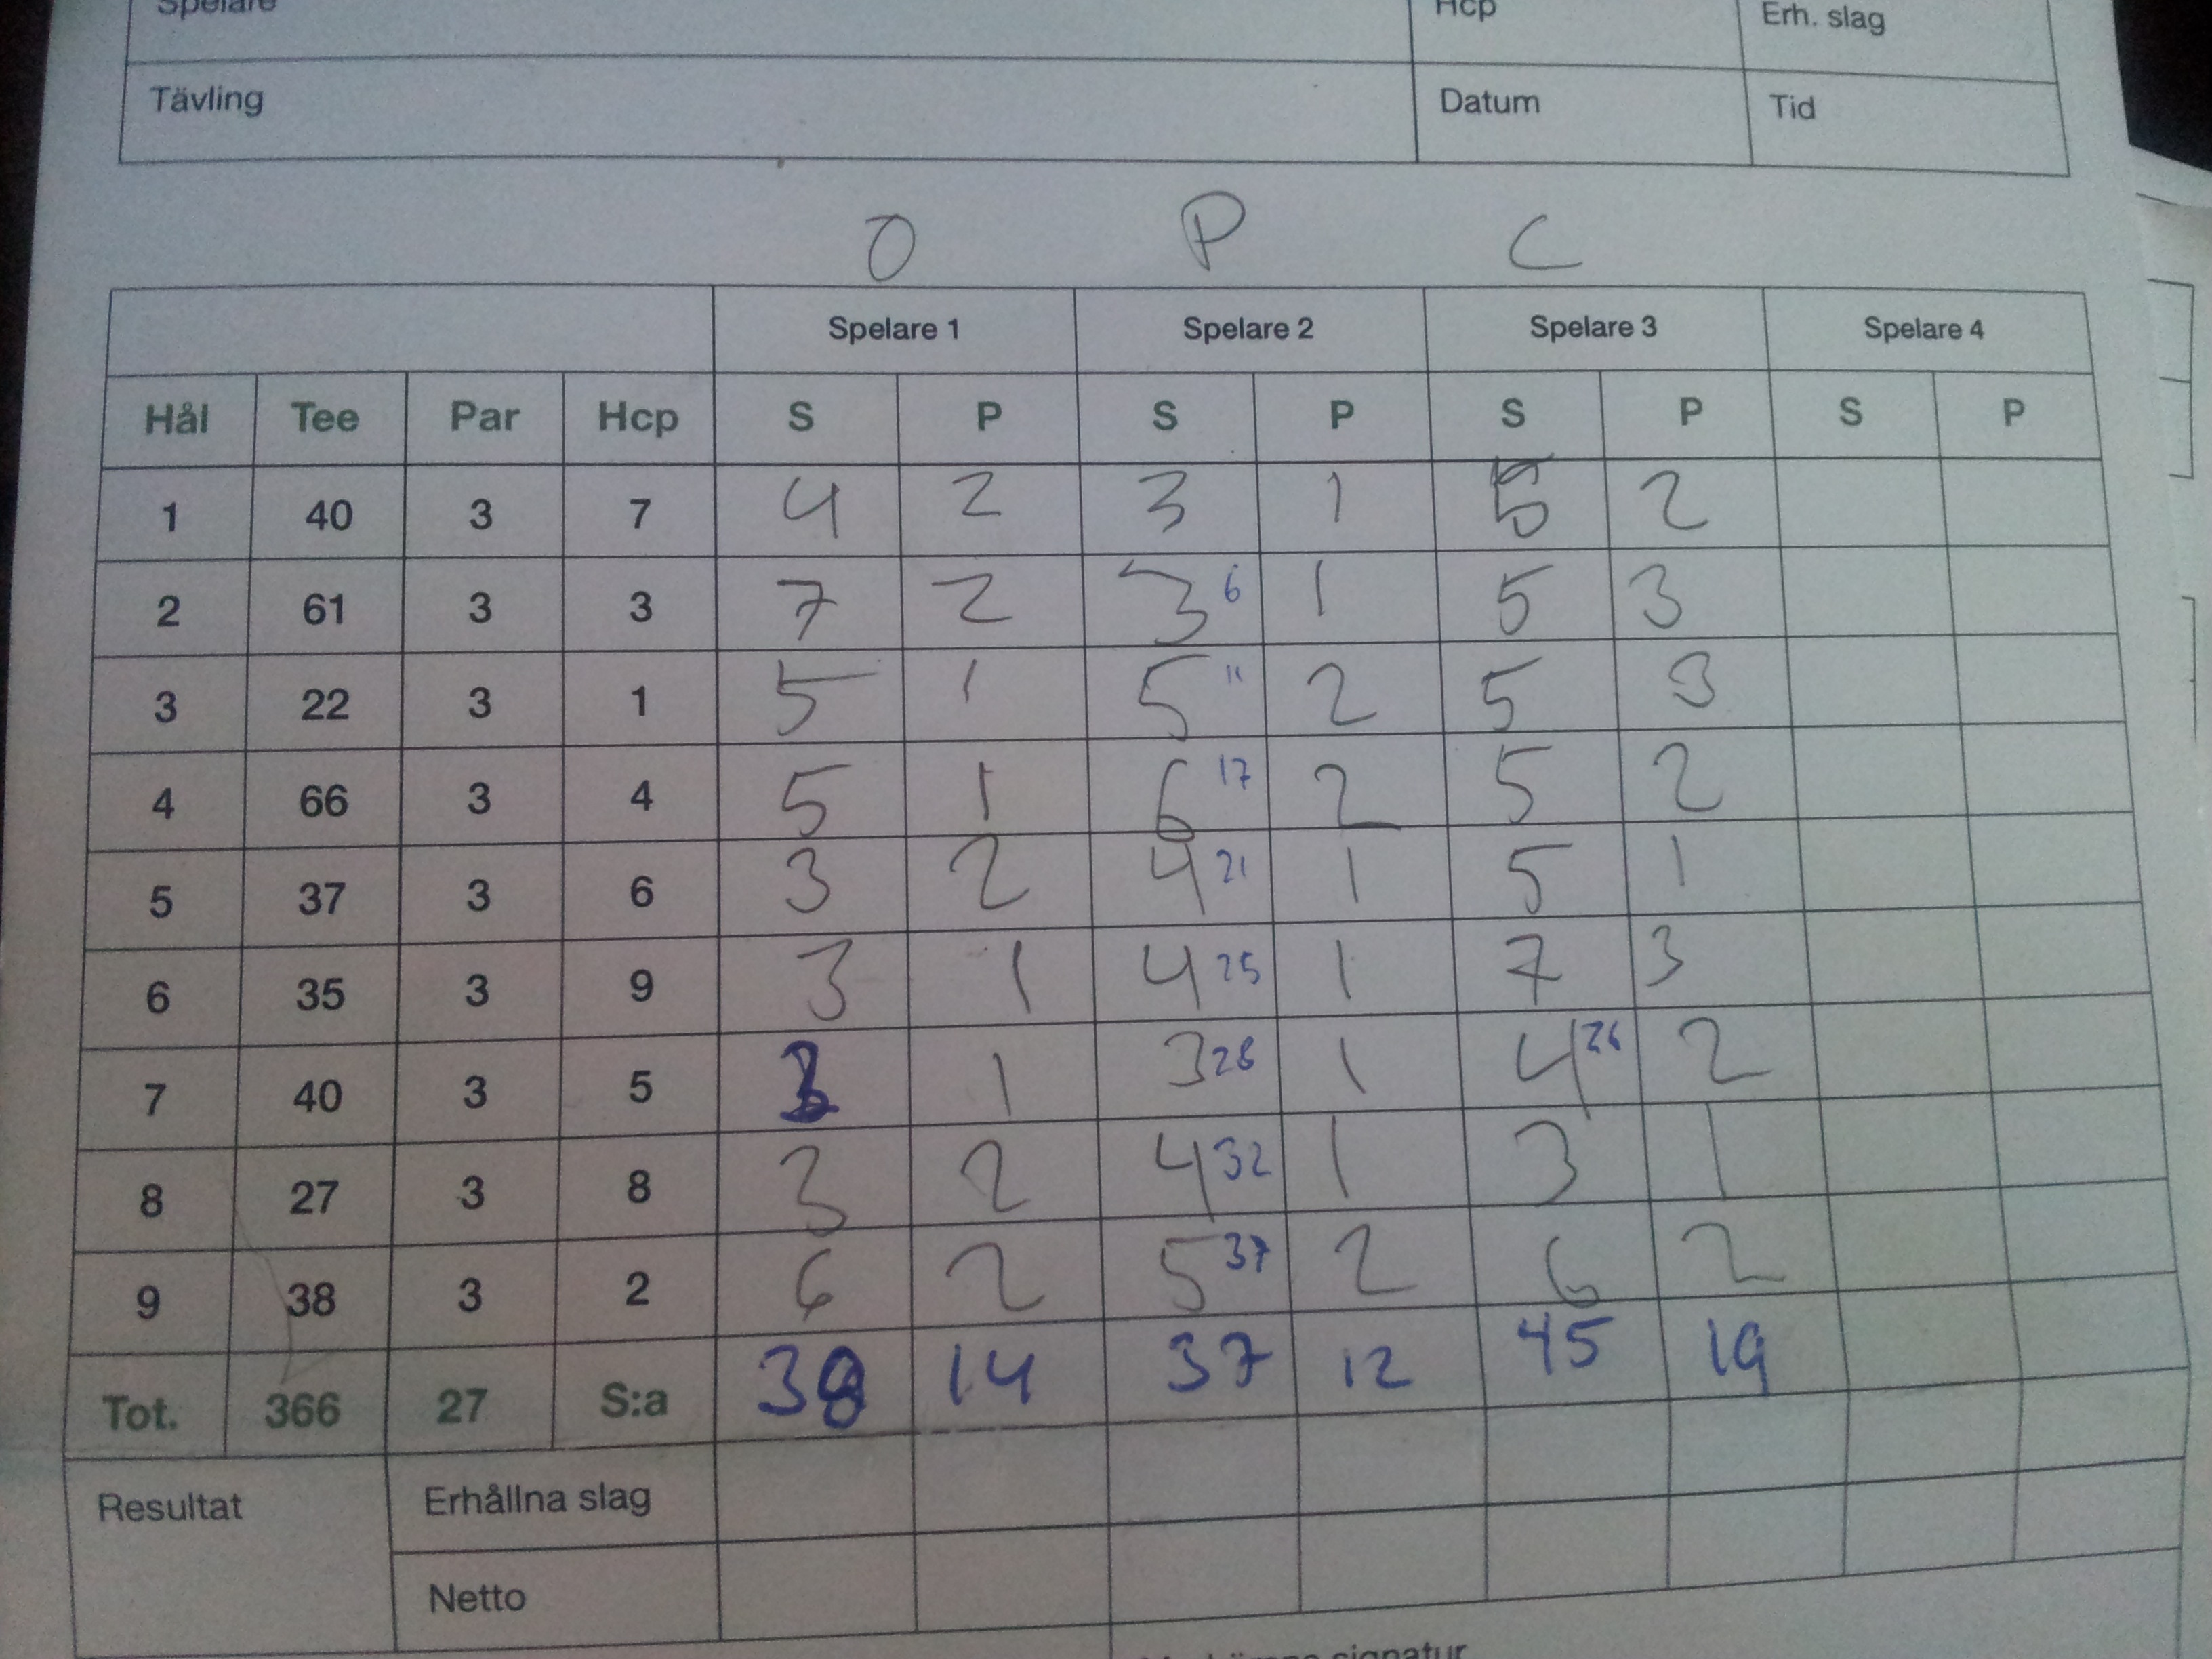 Spelare Hcp Erh. slag
Tävling Datum Tid
O P C
Spelare 1 Spelare 2 Spelare 3 Spelare 4
Hål Tee Par Hcp S P S P S P S P
1 40 3 7 4 2 3 1 5 2
2 61 3 3 7 2 3 6 1 5 3
3 22 3 1 5 1 5 11 2 5 3
4 66 3 4 5 1 6 17 2 5 2
5 37 3 6 3 2 4 21 1 5 1
6 35 3 9 3 1 4 25 1 7 3
7 40 3 5 1 3 28 1 4 26 2
8 27 3 8 3 2 4 32 1 3 1
9 38 3 2 6 2 5 37 2 6 2
Tot. 366 27 S:a 38 14 37 12 45 19
Resultat Erhållna slag
Netto
signatur